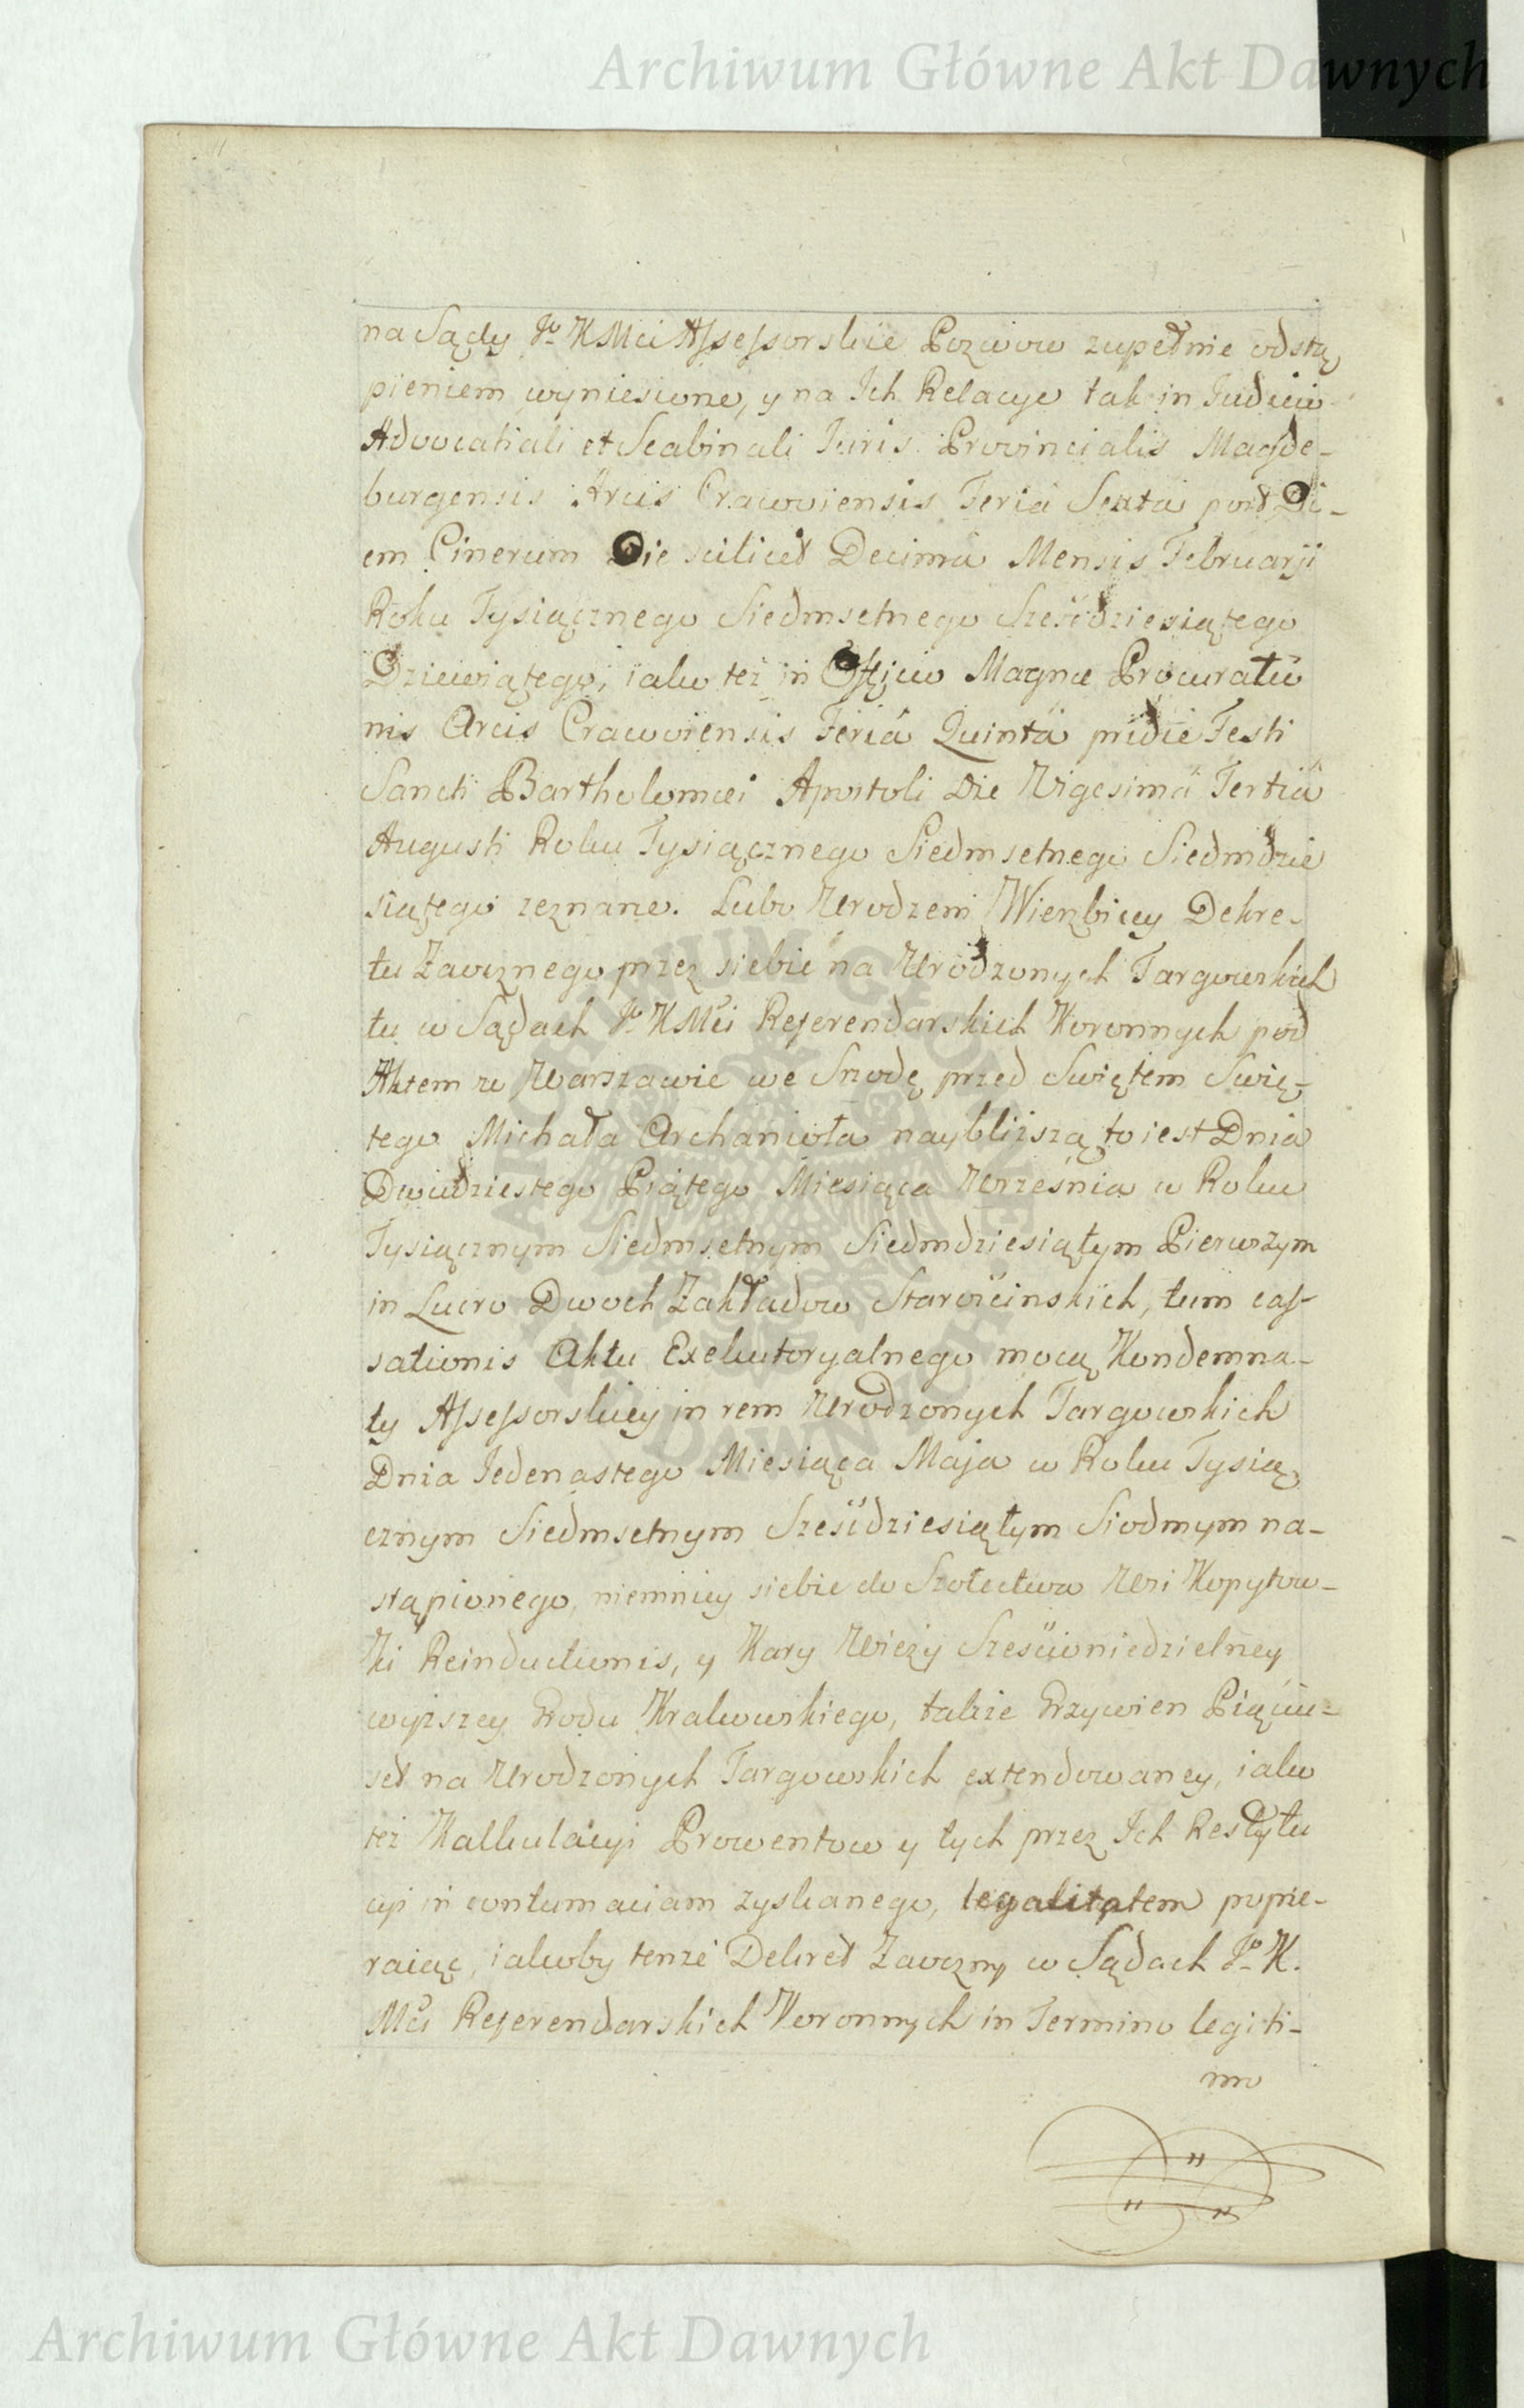 Archiwum Główne Akt Dawnych
na Sądy Jo KMci Assessorskie Pozwow zupełnie odstą
pieniem wyniesione, y na Ich Relacye tak in Judicio
Advocatiali et Scabinali Juris Provincialis Magde-
burgensis Arcis Cracoviensis Feria Sexta post Di-
em Cinerum Die scilicet Decima Mensis Februarij
Roku Tysiącznego Siedmsetnego Sześćdziesiątego
Dziewiątego, iako też in Officio Magnæ Procuratio
nis Arcis Cracoviensis Feria Quinta pridie Festi
Sancti Bartholomæi Apostoli Die Vigesima Tertia
Augusti Roku Tysiącznego Siedmsetnego Siedmdzie
siątego zeznane. Lubo Urodzeni Wierzbiccy Dekre-
tu Zaocznego przez siebie na Urodzonych Targowskich
tu w Sądach Jo KMci Referendarskich Koronnych pod
Aktem w Warszawie we Srzodę przed Swiętem Swię-
tego Michała Archanioła naybliższą to iest Dnia
Dwudziestego Piątego Miesiąca Września w Roku
Tysiącznym Siedmsetnym Siedmdziesiątym Pierwszym
in Lucro Dwoch Zakładow Starościnskich, tum cas-
sationis Aktu Exekutoryalnego mocą Kondemna-
ty Assessorskiey in rem Urodzonych Targowskich
Dnia Jedenastego Miesiąca Maja w Roku Tysią
cznym Siedmsetnym Sześćdziesiątym Siodmym na-
stąpionego, niemniey siebie do Szołectwa Wsi Kopytow-
ki Reinductionis, y Kary Wieży Sześćioniedzielney
wyższey Grodu Krakowskiego, także Grzywien Pięciu-
set na Urodzonych Targowskich extendowaney, iako
też Kalkulacyi Prowentow y tych przez Ich Restytu
cyi in contumaciam zyskanego, legalitatem popie-
raiąc, iakoby tenże Dekret Zaoczny w Sądach Jo K.
Mci Referendarskich Koronnych in Termino legiti-
mo
ARCHIWUM GŁÓWNE AKT DAWNYCH
Archiwum Główne Akt Dawnych